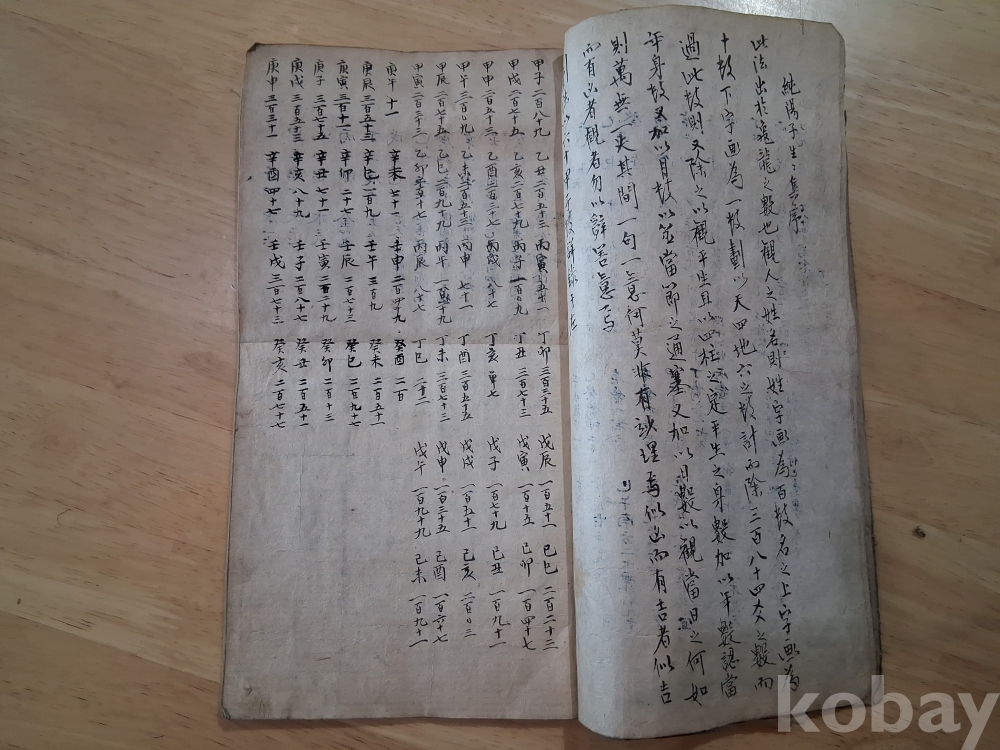 純陽子先生集序
此法出於㴞龍之數也觀人之姓名則姓字画為百数名之上字画為
十数下字画為一数劃以天四地六之数計而除三百八十四爻之數而
過此数則又除之以觀平生且以四柱之定平生之身數加以年數認當
年身数又加以月数以並當節之通塞又加以日數以觀當日之何如
則萬無一失其間一句一意何莫非有妙理焉似凶而有吉者似吉
而有凶者觀者勿以辭害意焉
甲子 二百八十九 乙丑 二百五十三 丙寅 五十一 丁卯 三百三十五 戊辰 一百五十一 己巳 二百二十三
甲戌 二百七十五 乙亥 二百七十九 丙子 丁丑 三百七十三 戊寅 一百十五 己卯 一百四十七
甲申 二百五十三 乙酉 丙戌 八十七 丁亥 單七 戊子 一百七十九 己丑 一百九十一
甲午 三百〇九 乙未 丙申 七十一 丁酉 三百五十五 戊戌 一百五十一 己亥 二百〇三
甲辰 二百七十五 乙巳 二百九十九 丙午 丁未 三百七十三 戊申 一百三十五 己酉 一百六十七
甲寅 二百三十三 乙卯 丙辰 八十七 丁巳 二十二 戊午 一百九十九 己未 一百九十一
庚午 十一 辛未 七十一 壬申 癸酉 二百
庚辰 三百五十三 辛巳 壬午 三百九 癸未 二百五十一
庚寅 三百十一 辛卯 二十七 壬辰 二百七十三 癸巳 二百九十七
庚子 三百七十五 辛丑 七十一 壬寅 癸卯 二百十三
庚戌 三百五十三 辛亥 八十九 壬子 二百八十七 癸丑 二百五十一
庚申 三百三十一 辛酉 四十七 壬戌 三百七十三 癸亥 二百七十七
kobay